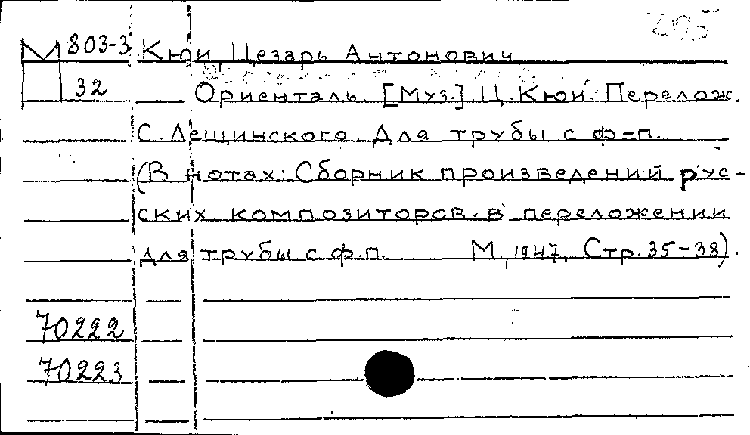 295
М 803-3 Кюи, Цезарь Антонович
32 Ориенталь. [Муз.] Ц. Кюи. Перелож.
С. Лещинского. Для трубы с ф-п.
(В нотах: Сборник произведений рус-
ских композиторов в переложении
для трубы с ф.п. М., 1947, Стр. 35-38).
70222
70223